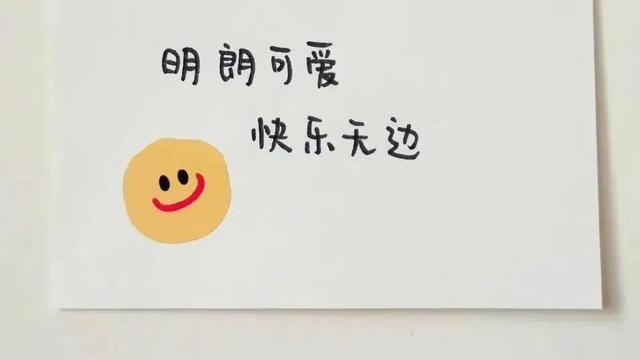 明朗可爱
快乐无边